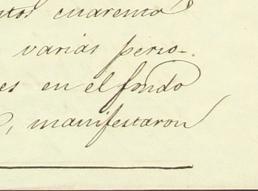 ntos cuarenta
varias perso-
es en el fondo
, manifestaron